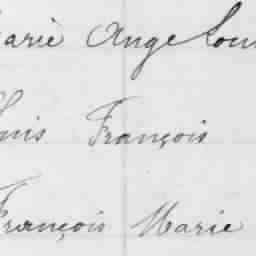 arie Ange Lou
ouis François
François Marie